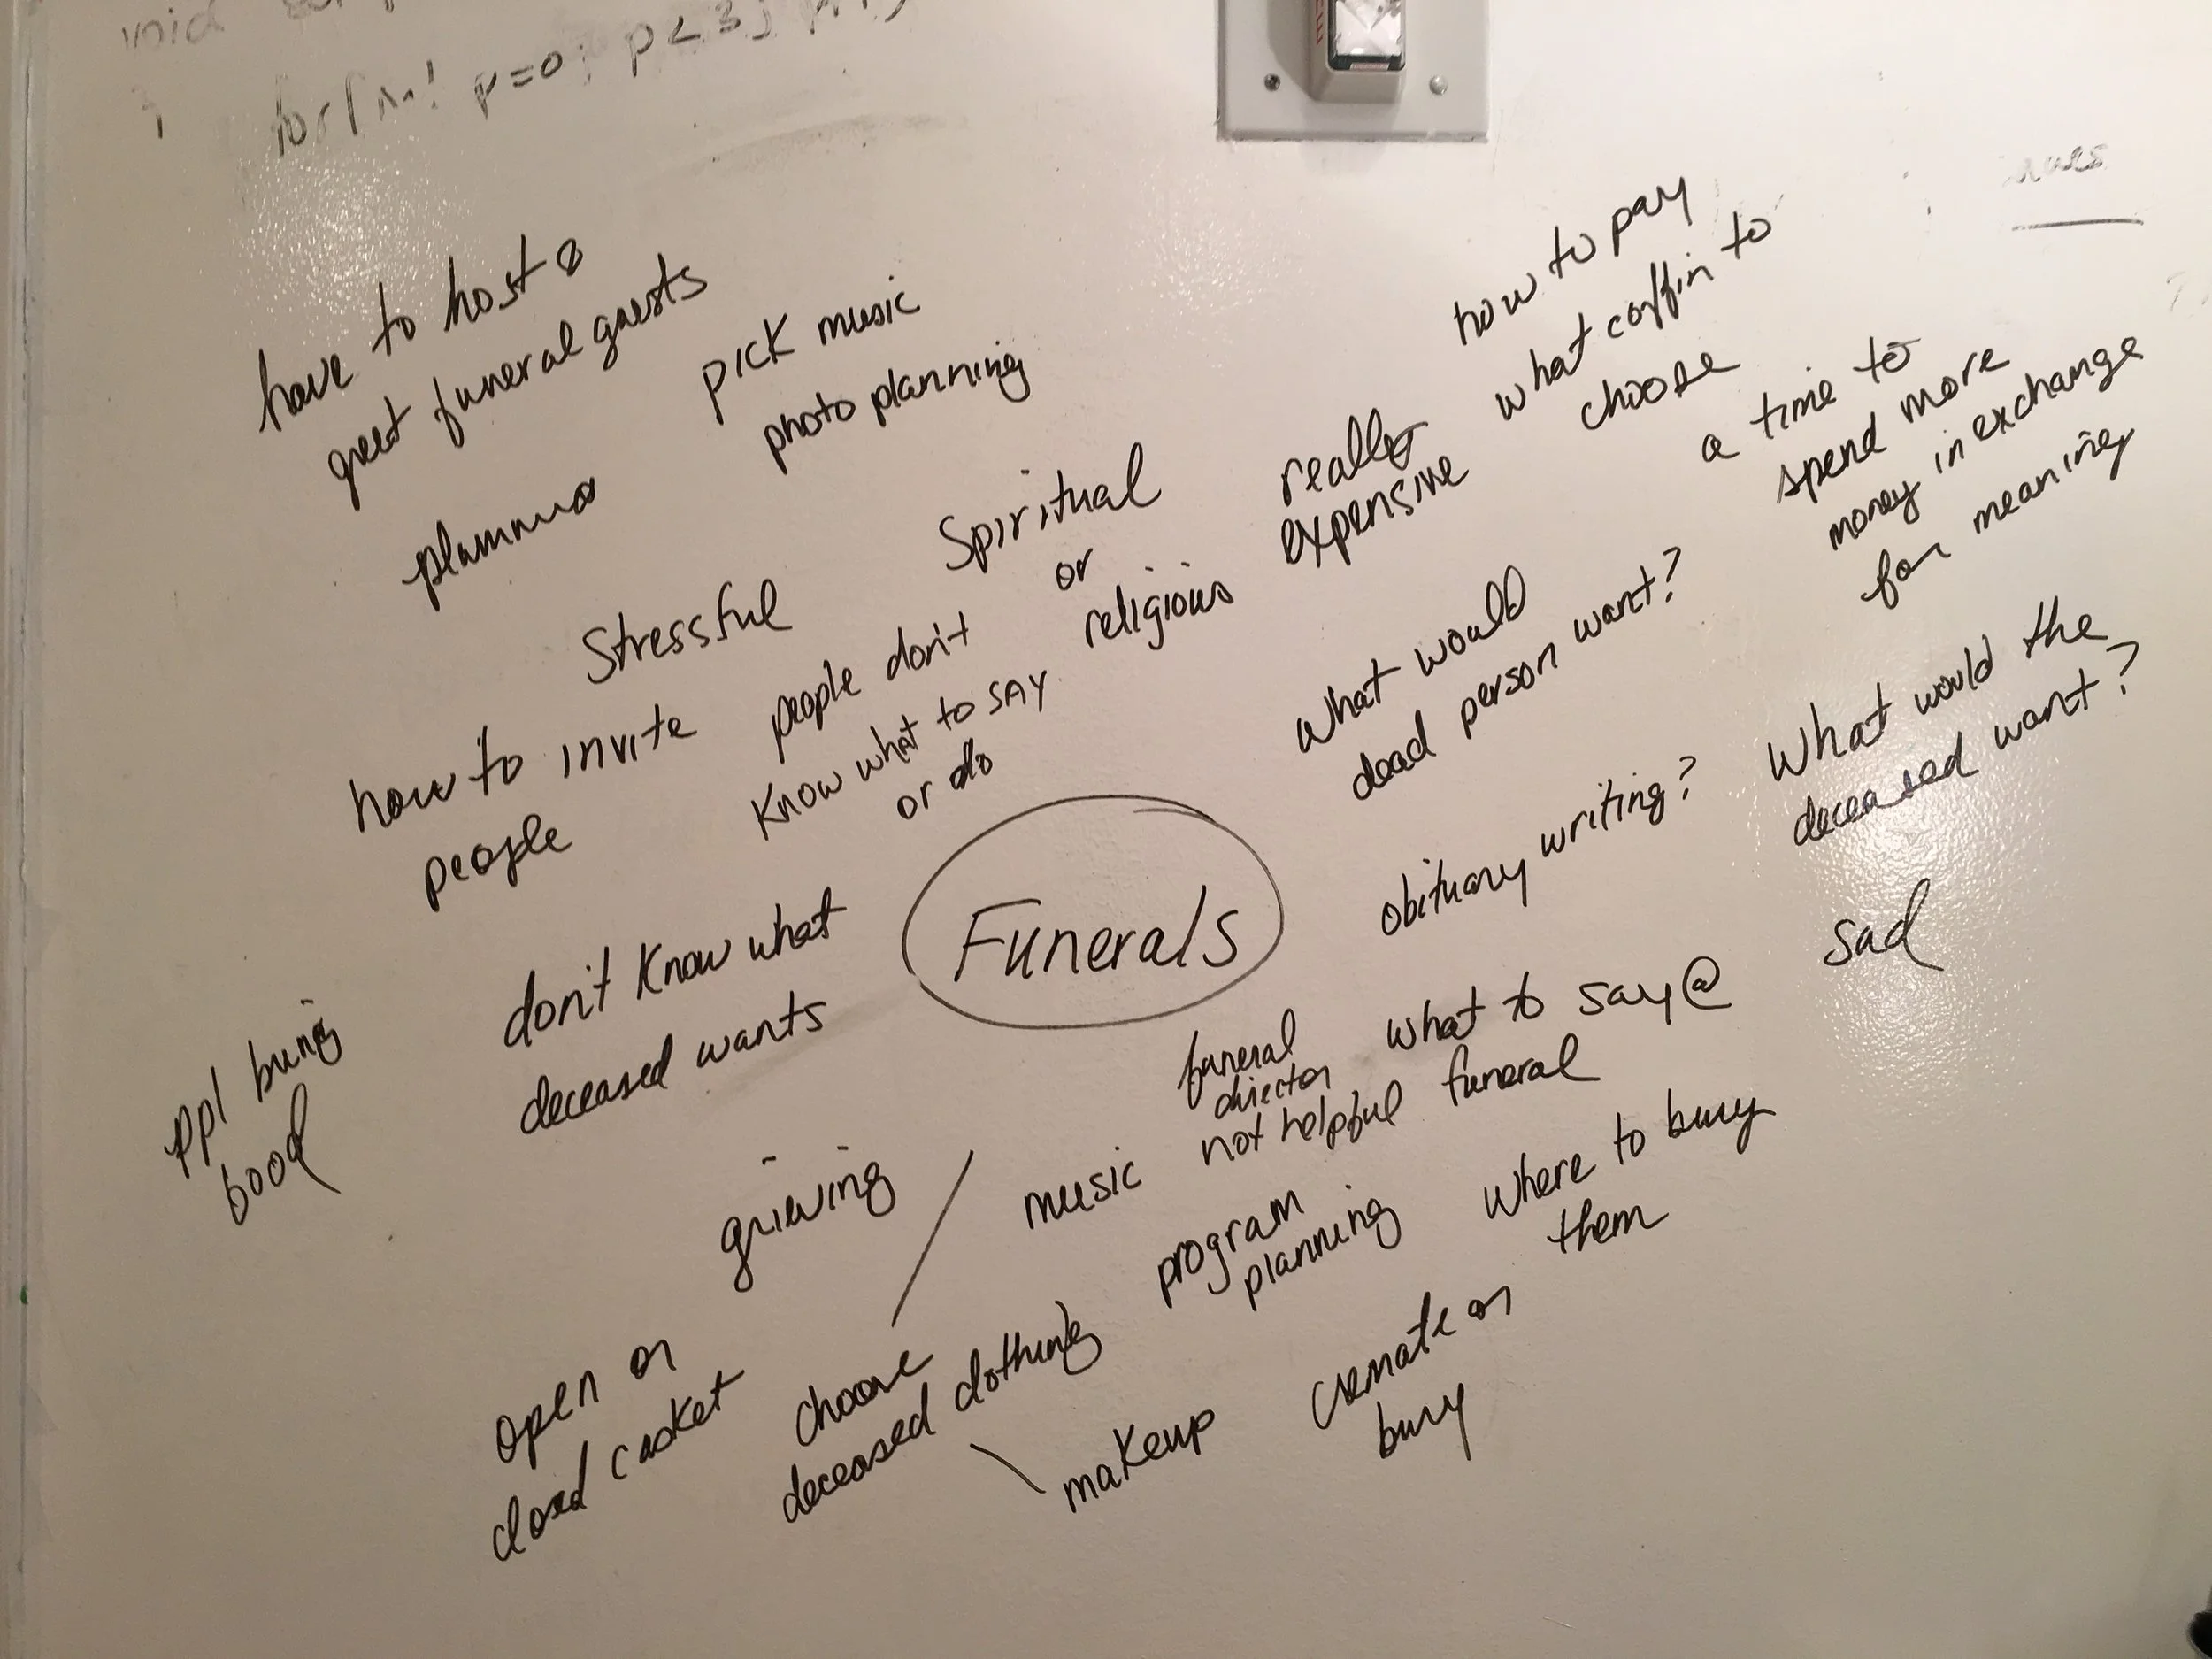 void
for(int p=0; p<3; p++)
have to host &
greet funeral guests
pick music
photo planning
planning
Stressful
Spiritual
or
religious
really
expensive
how to pay
what coffin to
choose
a time to
spend more
money in exchange
for meaning
how to invite
people
people don't
know what to say
or do
What would
dead person want?
What would the
deceased want?
obituary writing?
Funerals
don't know what
deceased wants
sad
ppl bring
food
funeral
director
not helpful
what to say @
funeral
grieving
music
program
planning
where to bury
them
open or
closed casket
choose
deceased clothing
makeup
cremate or
bury